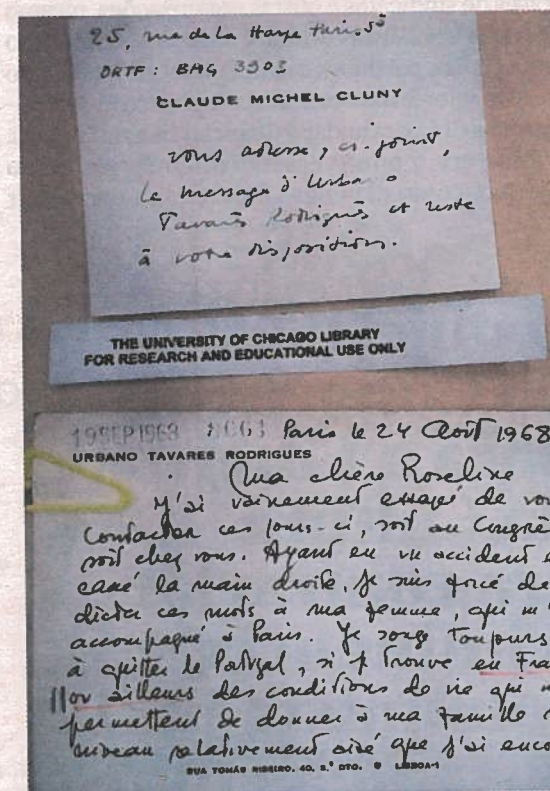 25, rue de La Harpe Paris 5e
ORTF : BAG 3903
CLAUDE MICHEL CLUNY
vous adresse, ci-joint,
le message d'Urbano
Tavarès Rodriguès et reste
à votre disposition.
THE UNIVERSITY OF CHICAGO LIBRARY
FOR RESEARCH AND EDUCATIONAL USE ONLY
19 SEP 1968 Paris le 24 Août 1968
URBANO TAVARES RODRIGUES
Ma chère Roseline
J'ai vainement essayé de vou
contacter ces jours-ci, soit au Congrè
soit chez vous. Ayant eu un accident e
cassé la main droite, je suis forcé de
dicter ces mots à ma femme, qui m'
accompagné à Paris. Je songe toujours
à quitter le Portugal, si je trouve en Fra
ou ailleurs des conditions de vie qui m
permettent de donner à ma famille
niveau relativement aisé que j'ai enco
RUA TOMÁS RIBEIRO, 40, 5.º DTO. LISBOA-1